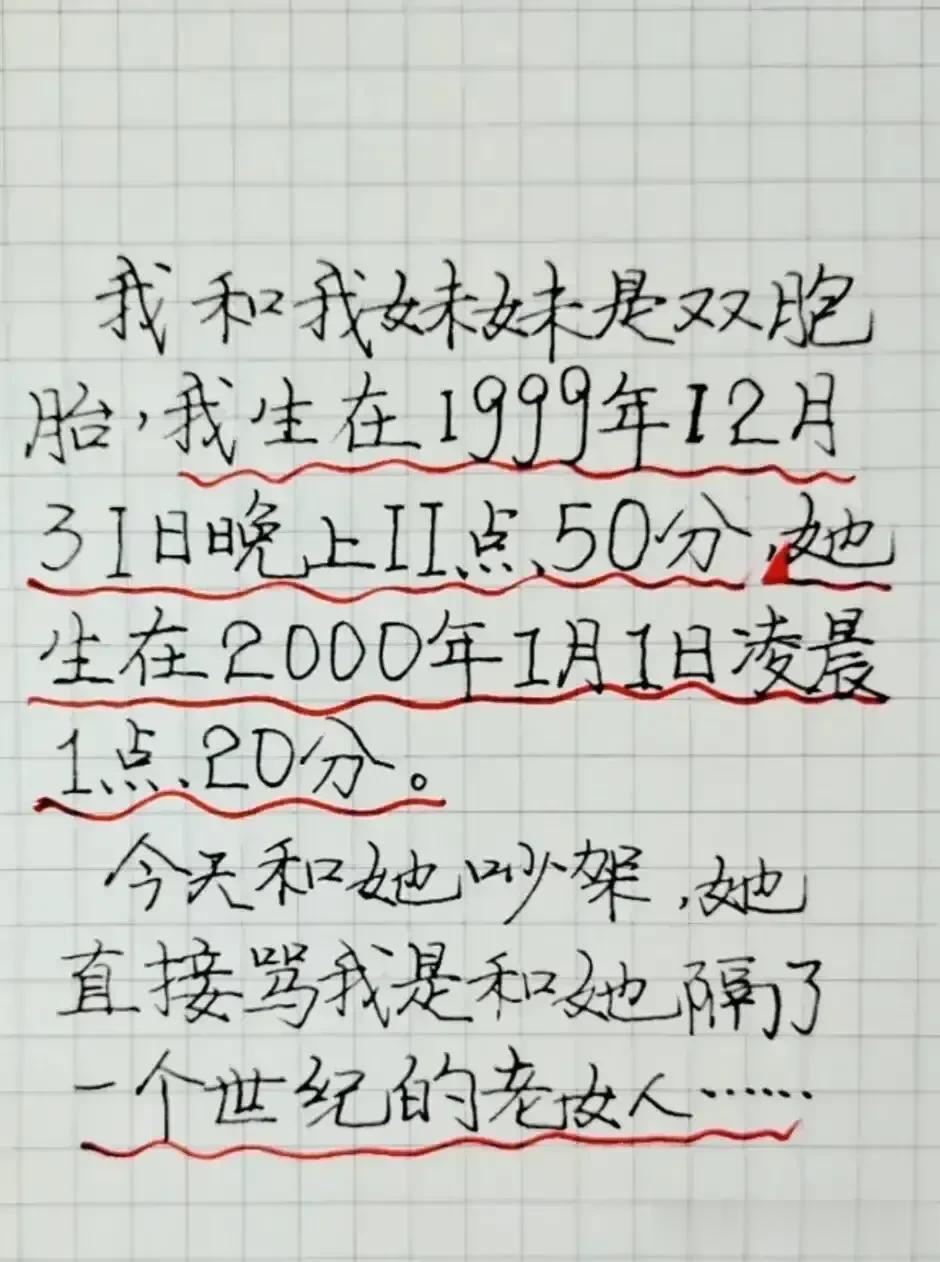 我和我妹妹是双胞
胎,我生在1999年12月
31日晚上11点50分,她
生在2000年1月1日凌晨
1点20分。
今天和她吵架,她
直接骂我是和她隔了
一个世纪的老女人……